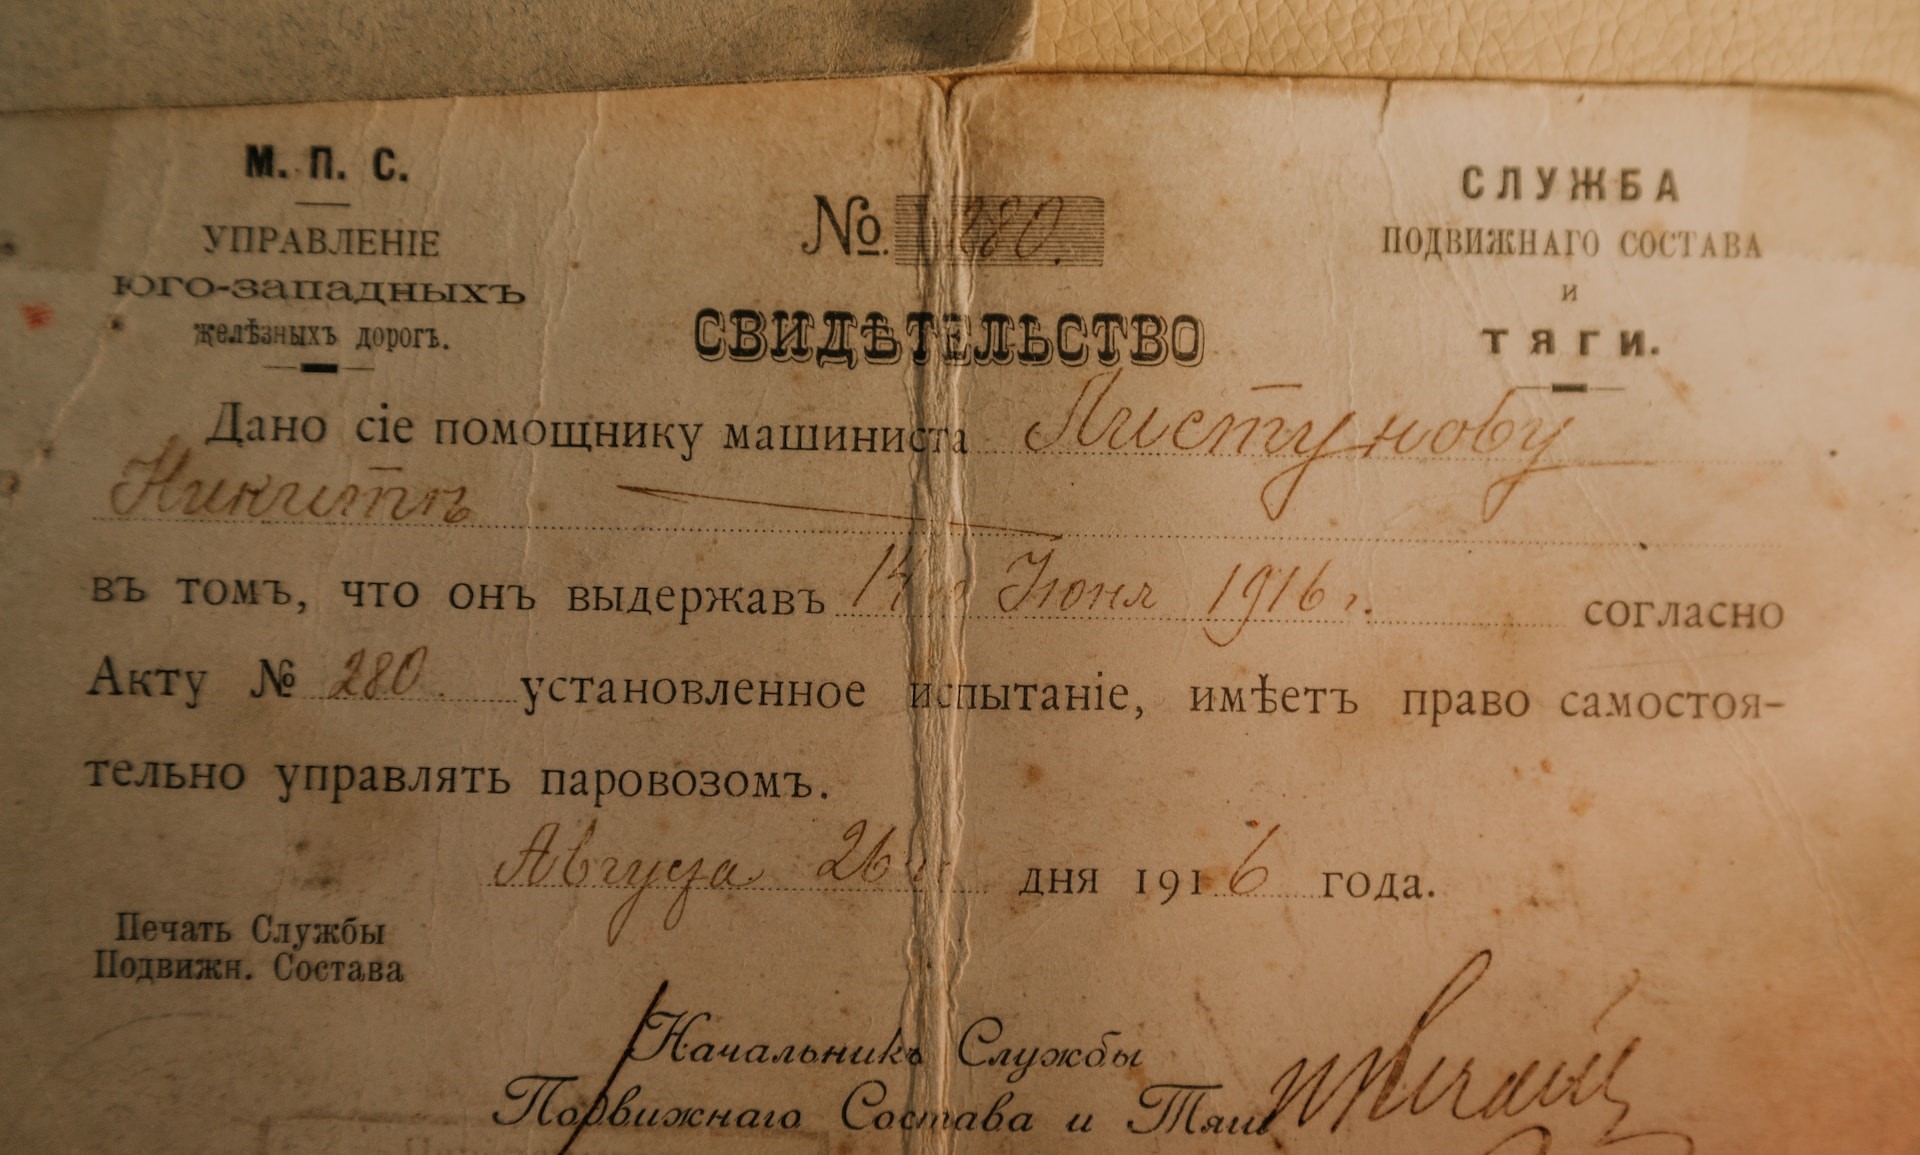 М. П. С.
УПРАВЛЕНІЕ
ЮГО-ЗАПАДНЫХЪ
желѣзныхъ дорогъ.
№. 280.
СЛУЖБА
ПОДВИЖНАГО СОСТАВА
И
ТЯГИ.
СВИДѢТЕЛЬСТВО
Дано сіе помощнику машиниста Пистунову
Никитѣ
въ томъ, что онъ выдержавъ 14го Іюня 1916 г. согласно
Акту № 280. установленное испытаніе, имѣетъ право самостоя-
тельно управлять паровозомъ.
Августа 26 дня 1916 года.
Печать Службы
Подвижн. Состава
Начальникъ Службы
Подвижнаго Состава и Тяги